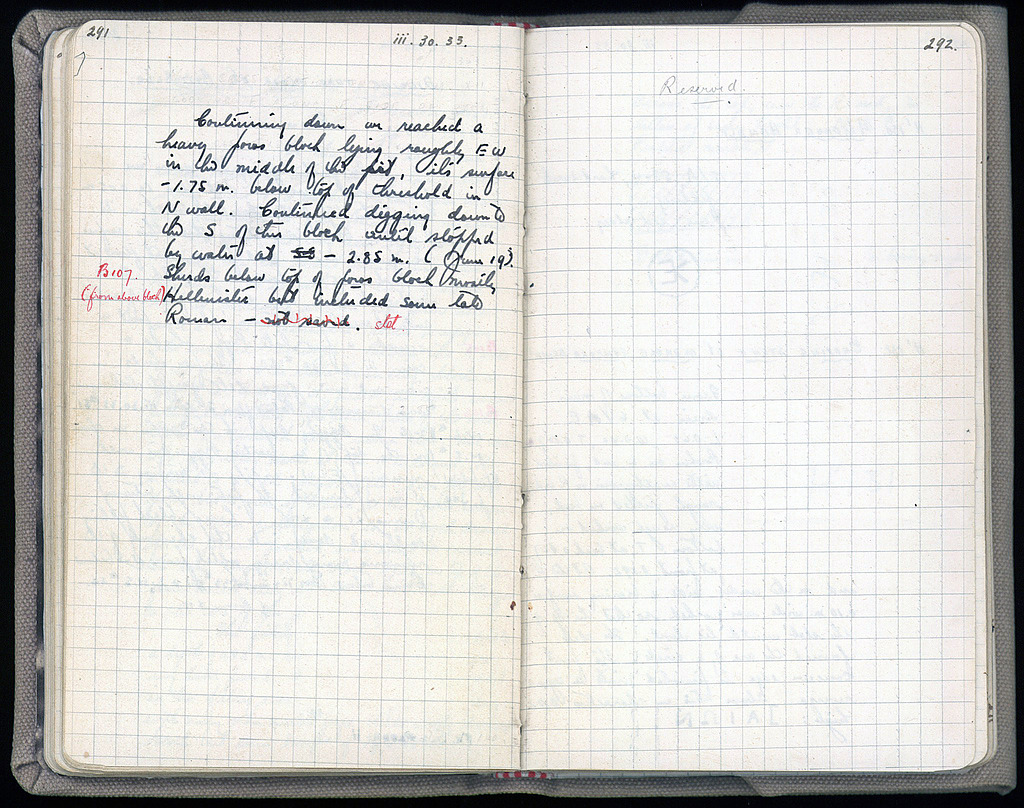 291
iii. 30. 33.
Continuing down we reached a
heavy poros block lying roughly E W
in the middle of the pit, its surface
-1.75 m. below top of threshold in
N wall. Continued digging down to
the S of this block until stopped
by water at - 2.85 m. (June 19).
B107. Sherds below top of poros block mostly
(from above block) Hellenistic but included some late
Roman – not saved. stet.
292.
Reserved.